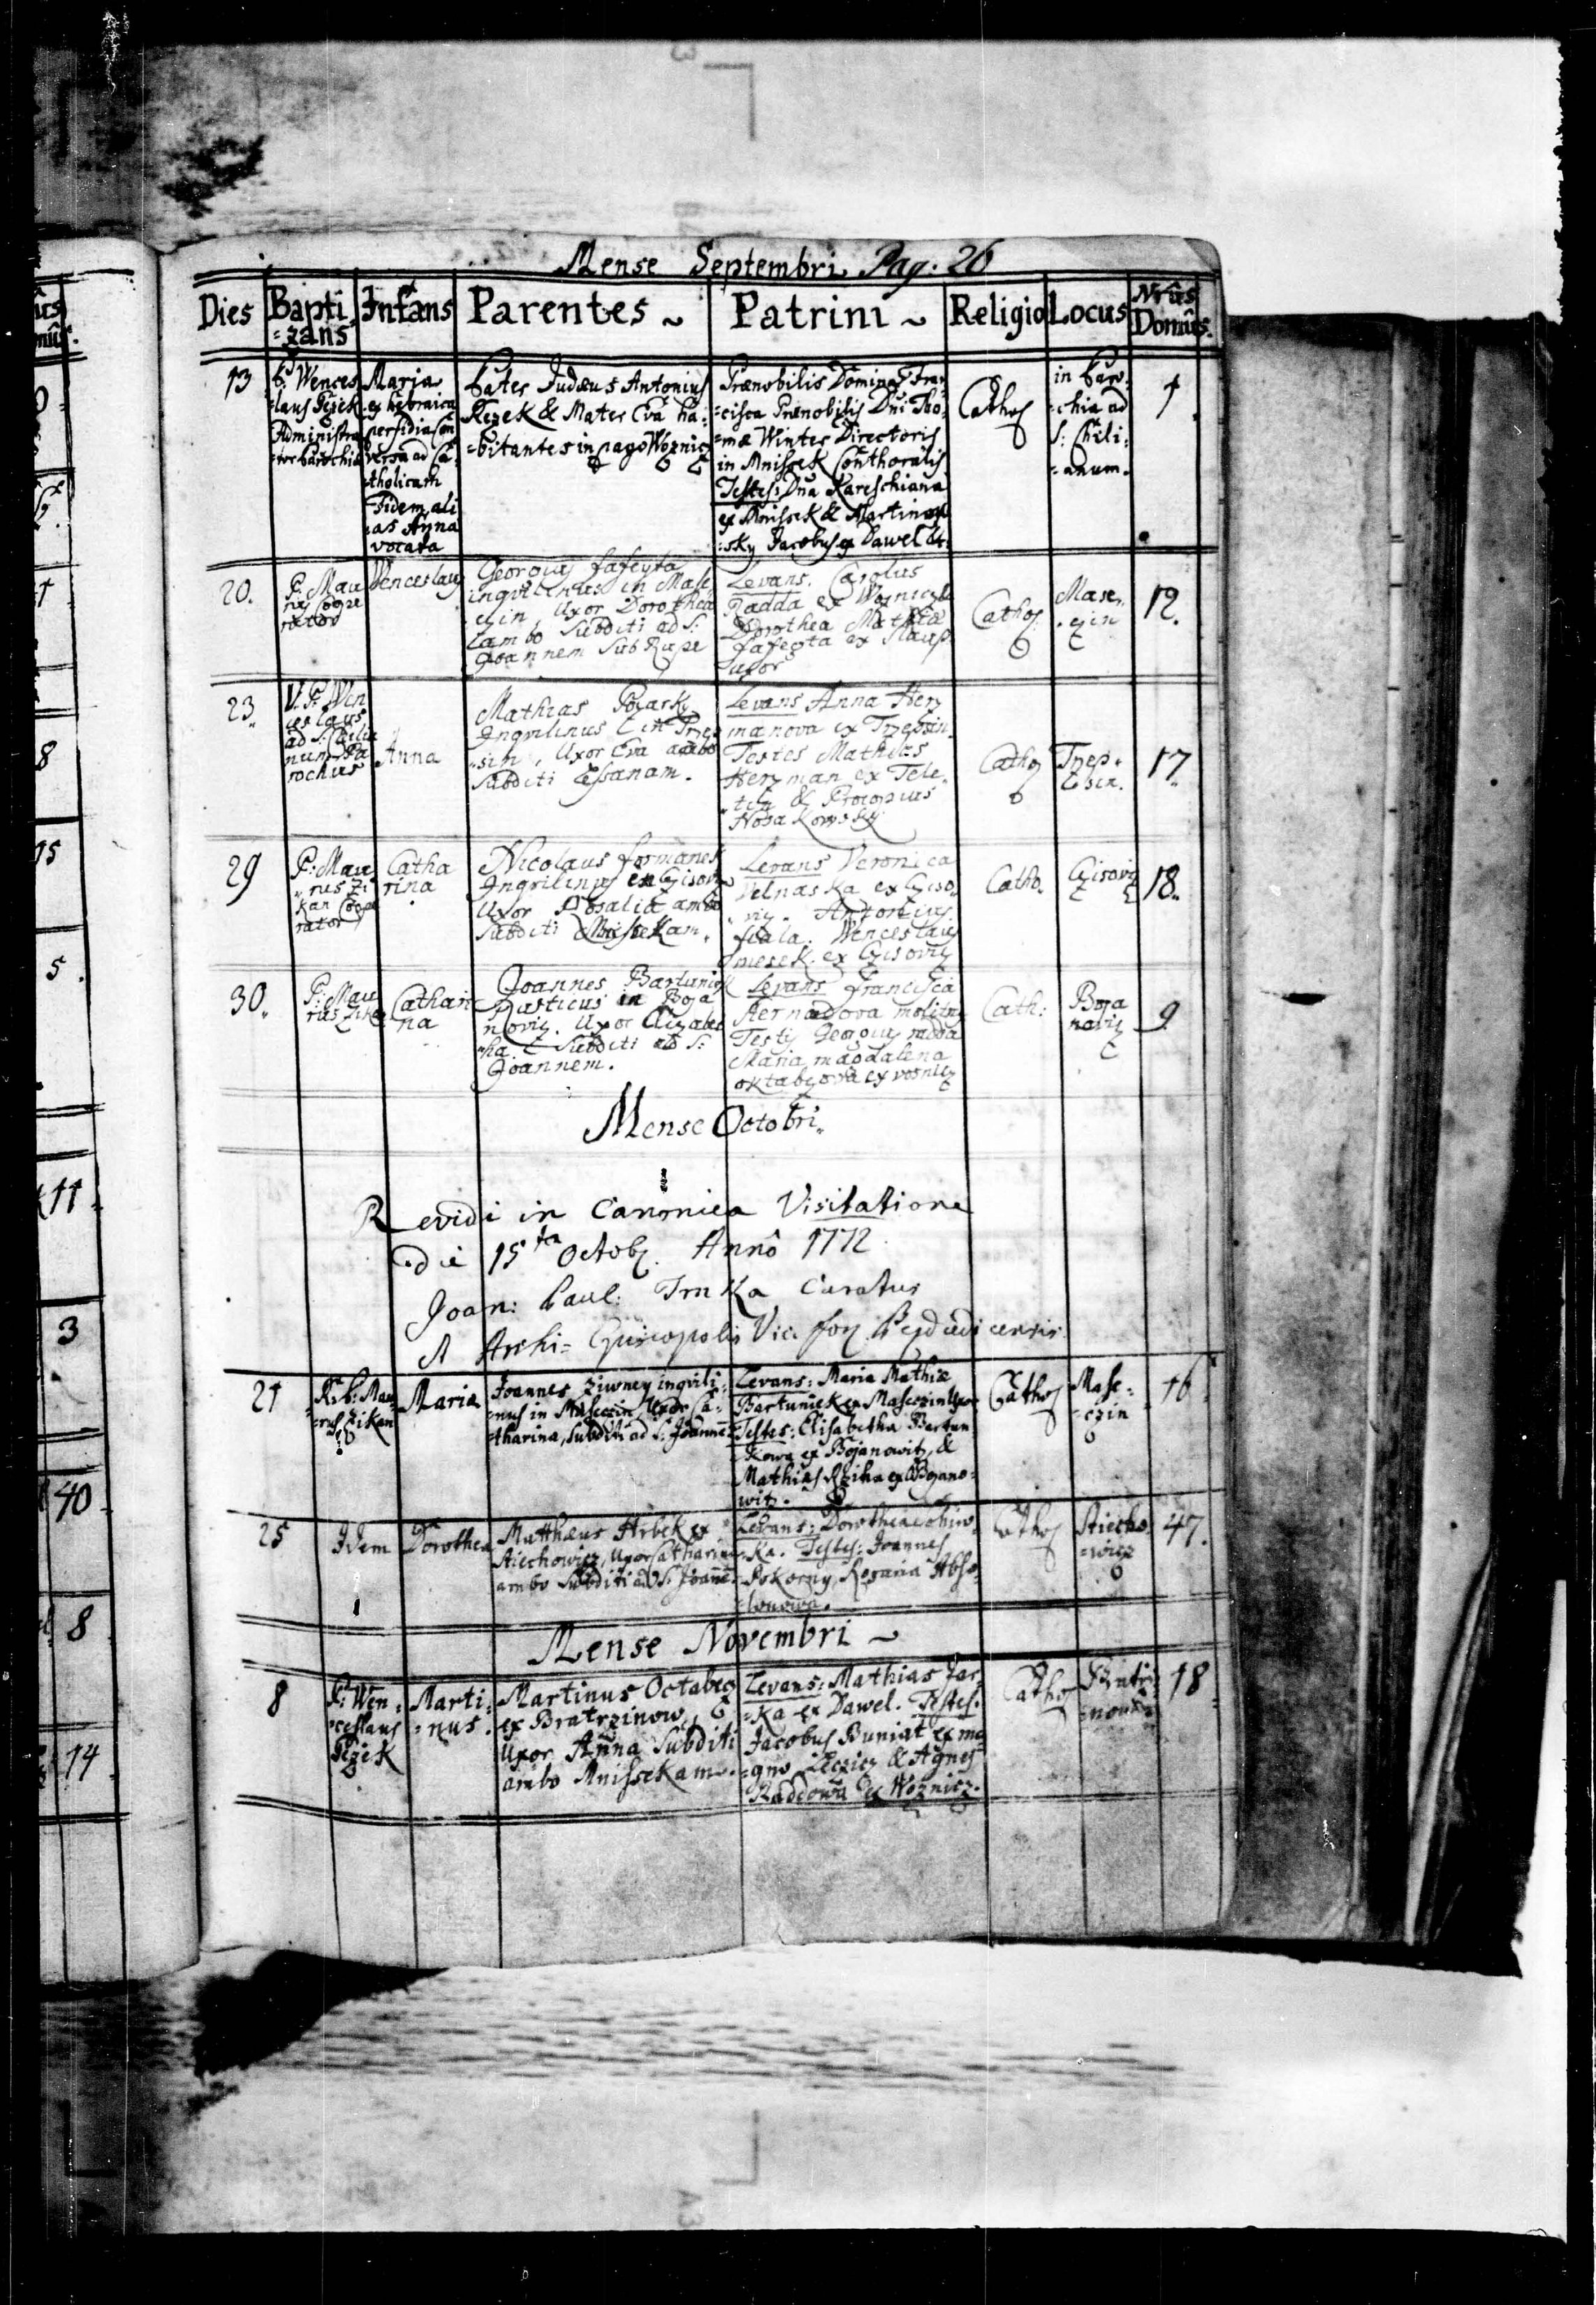 Mense Septembri Pag. 26
Dies
Bapti
=zans
Infans
Parentes ~
Patrini ~
Religio
Locus
Nrus
Domus.
13
P. Wences
=laus Pezek
Administra
=tor Parochiæ
Maria
ex hebraica
perfidia con
versa ad Ca:
=tholicam
Fidem, ali
as Anna
vocata
Pater Judæus Antonius
Kezek & Mater Eva ha:
=bitantes in pago Woznicz
Prænobilis Domina Fran
=cisca Prænobilis Dni Tho:
=mæ Winter Directoris
in Mnissek Conthoralis
Testes: Dna Kareschiana
ex Mnissek & Martinow
:sky Jacobus ex Dawel &
Cathol
in Paro:
=chia ad
S: Chili:
=anum.
1
20.
P: Mau
rus Coope
rator
Wenceslaus
Georgius fafeyta
inqvilinus in Mase
czin, Uxor Dorothea
ambo Subditi ad S:
Joannem Sub Rupe
Levans. Carolus
Radda ex Wozniczk
Dorothea Mathiæ
fafeyta ex Slaup
uxor
Cathol
Mase
czin
12.
23.
V. P. Wen
ceslaus
ad S: Chilia
num Pa
rochus
Anna
Mathias
Inqvilinus in Trzep
sin, Uxor Eva ambo
Subditi
Levans Anna Herz
manova ex Trzepsin.
Testes Mathias
Herzman ex Tele
tin & Procopius
Nosakowsky
Cathol
Trzep
sin.
17.
29
P: Mau
rus Zi
kan Coope
rator
Catha
rina
Nicolaus formanek
Inqvilinus ex Czisoviz
Uxor Rosalia ambo
Subditi Mnissekam.
Levans Veronica
Velnaska ex Cziso
viz. Antonius
fiala. Wenceslaus
mesek. ex Czisoviz
Catho.
Czisoviz
18.
30.
P: Mau
rus Zikan
Athari
na
Joannes Bartuniek
Rusticus in Boja
noviz. Uxor Elizabet
ha. Subditi ad S:
Joannem.
Levans francisca
Kernadova molitrix
Testis Georgius radda
Maria magdalena
oktabczova ex vosnicz
Cath:
Boja
noviz
9
Mense Octobri.
Revidi in Canonica Visitatione
die 15ta Octob. Anno 1772
Joan: Paul: Trnka Curatus
A Archi= Episcopalis Vic. for.
21
R. P. Mau
=rus Zikan
Maria
Joannes Ziwney inqvili:
=nus in Maseczin, Uxor Ca:
=tharina, Subditi ad S: Joannem
Levans: Maria Mathiæ
Bartuniek ex Maseczin Uxor
Testes: Elisabetha Bartun
kowa ex Bojanowitz, &
Mathias Rziha ex Bojano=
witz.
Cathol
Mase=
=czin
16
25
Idem
Dorothea
Matthæus Hrbek ex
Stiechowicz, Uxor Catharina
ambo Subditi ad S: Joannem
Levans: Dorothea
ka. Testes: Joannes
Pokorny, Rosaria Abso
=lonowa.
Cathol
Stiecho
=wicz
47.
Mense Novembri ~
8
P: Wen=
=ceslaus
Pezek
Marti:
=nus.
Martinus Octabecz
ex Bratrzinow,
Uxor Anna Subditi
ambo Mnissekam.
Levans: Mathias Jar
=ka ex Dawel. Testes.
Jacobus Buniat ex ma
=gno Leczicz & Agnes
Raddowa ex Woznicz.
Cathol
18
11
3
40
8
14